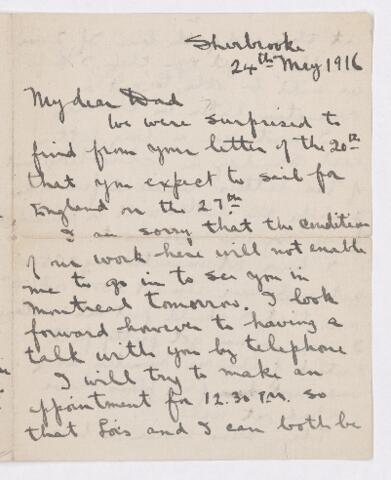 Sherbrooke
24th May 1916
My dear Dad
We were surprised to
find from your letter of the 20th
that you expect to sail for
England on the 27th.
I am sorry that the condition
of our work here will not enable
me to go in to see you in
Montreal tomorrow. I look
forward however to having a
talk with you by telephone
I will try to make an
appointment for 12.30 P.M. so
that Lois and I can both be